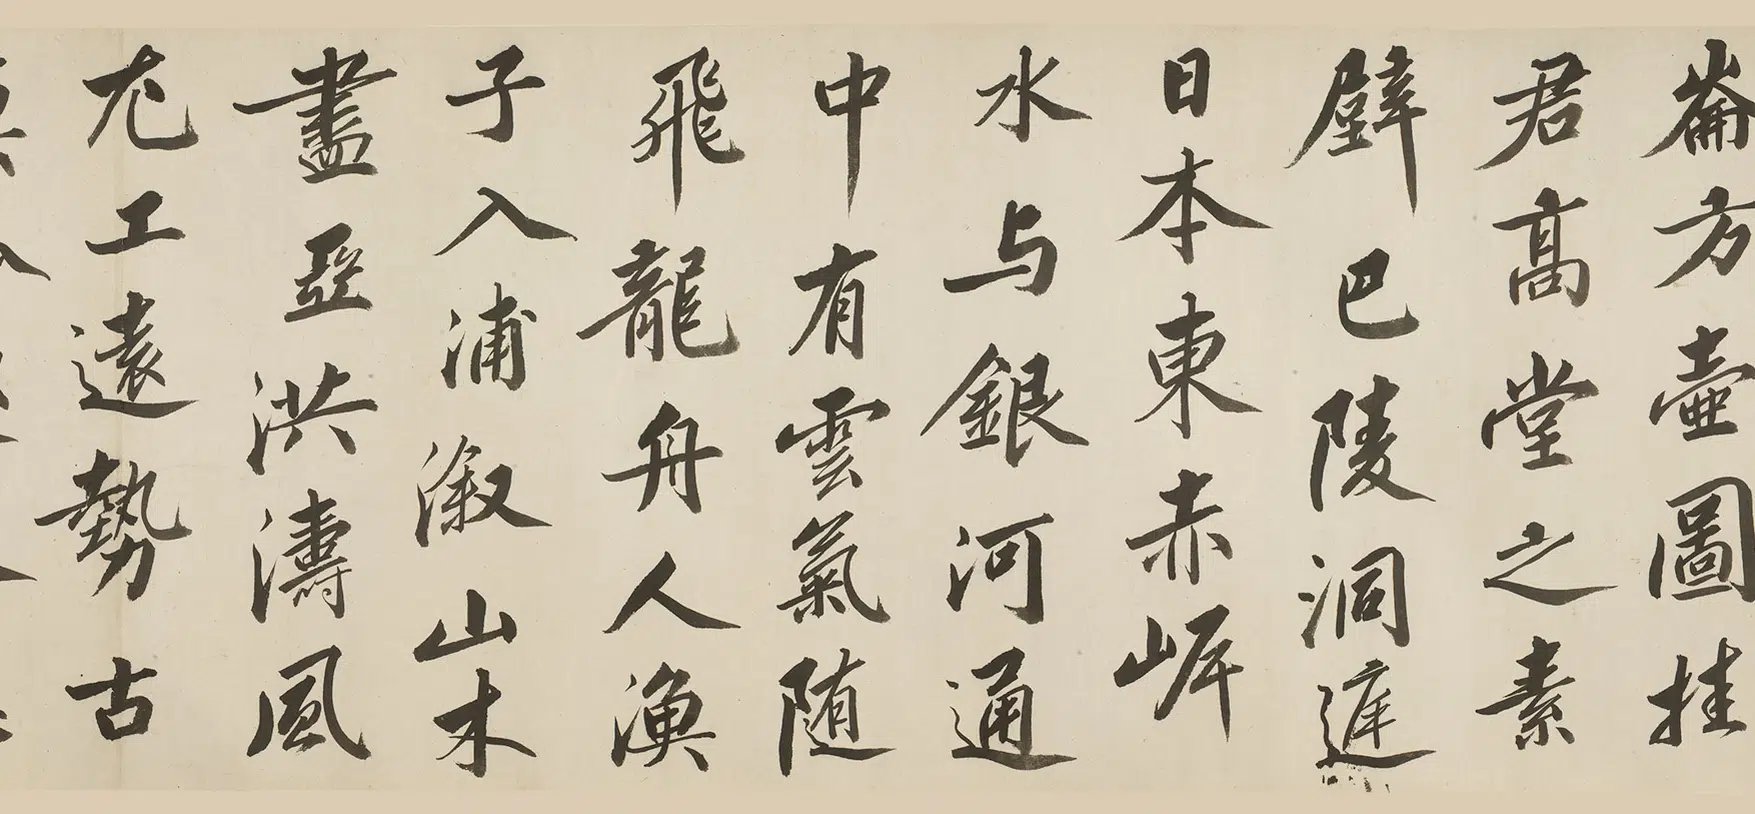 崙方壺圖挂
君高堂之素
壁巴陵洞庭
日本東赤岸
水与銀河通
中有雲氣随
飛龍舟人漁
子入浦溆山木
盡亞洪濤風
尤工遠勢古